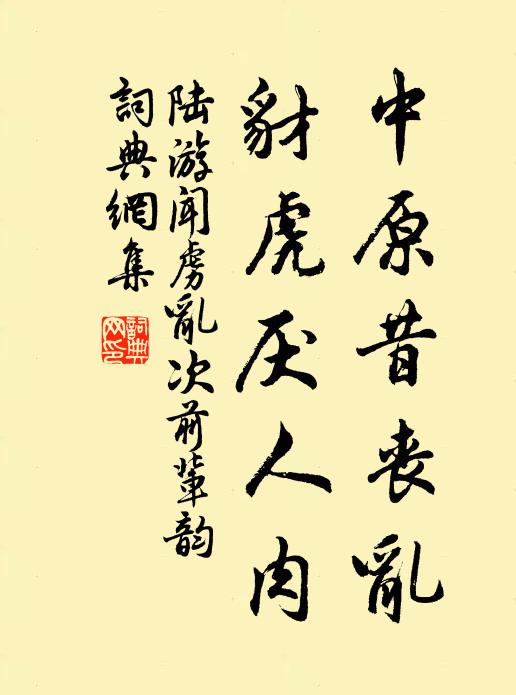 中原昔丧亂
豺虎厌人肉
陆游闻虏亂次前輩韵
詞典網集
詞典網印